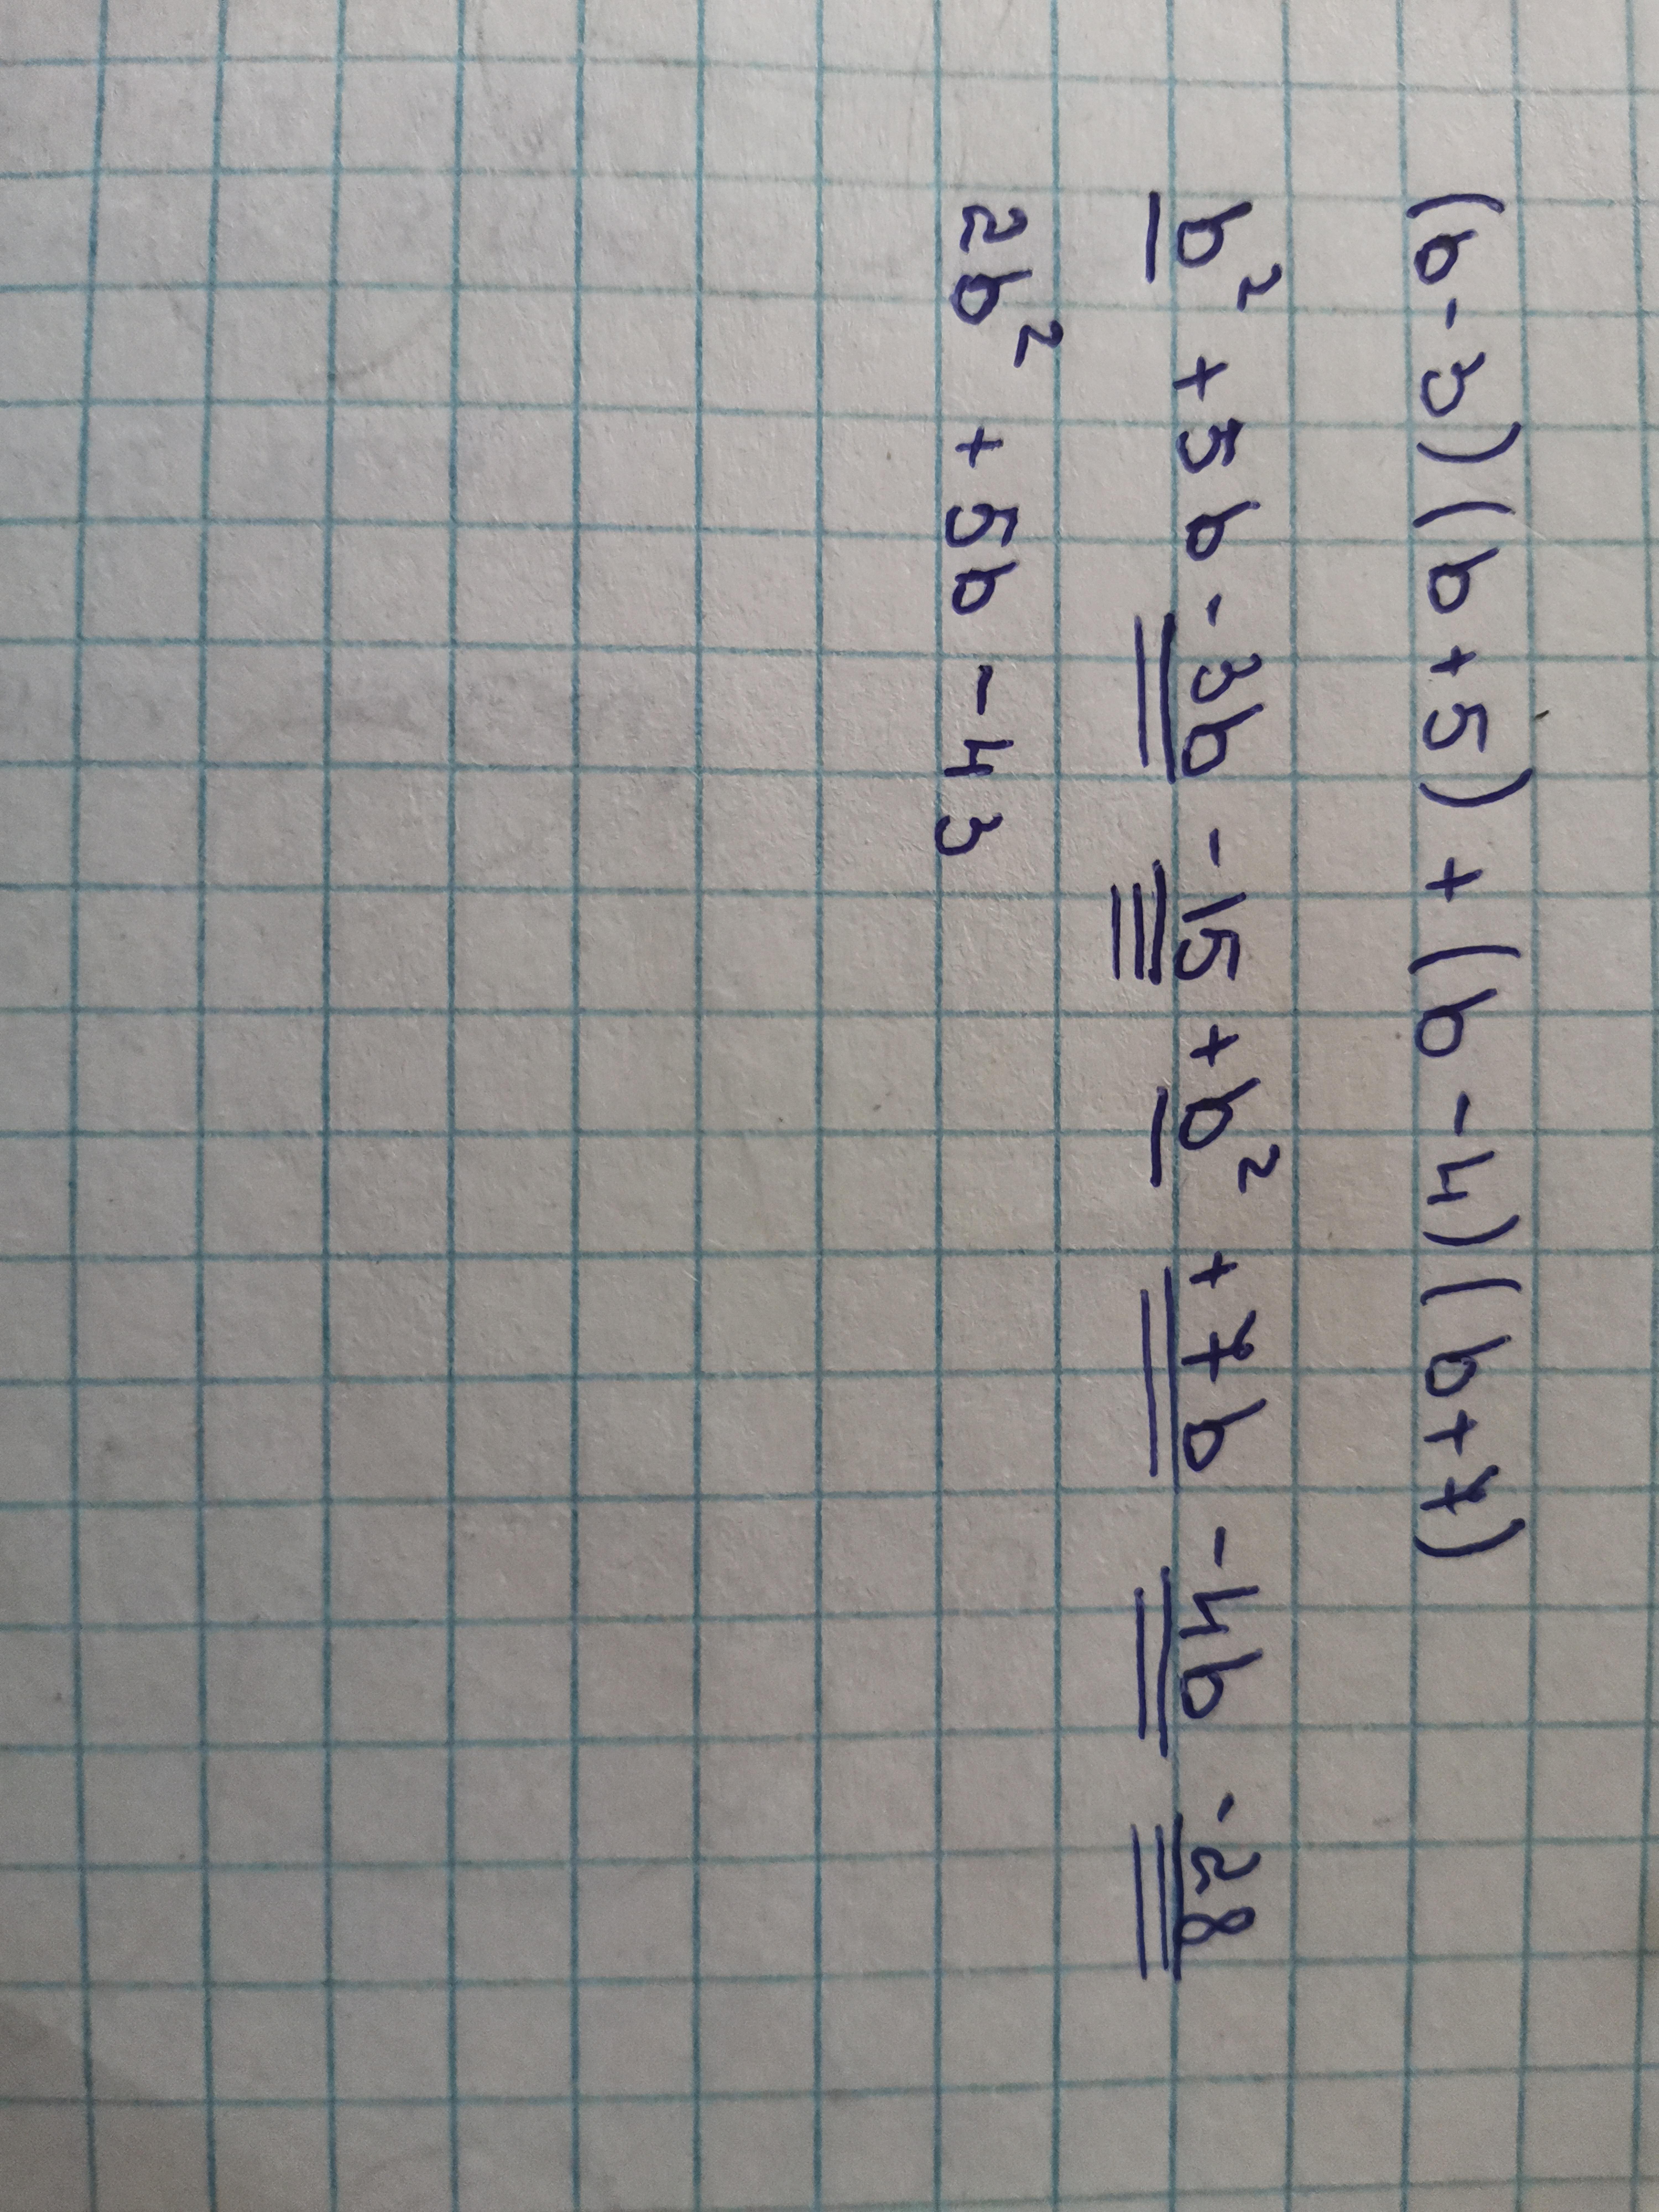 (b-3)(b+5)+(b-4)(b+7)
b² +5b-3b-15+b² +7b-4b-28
2b² +5b-43